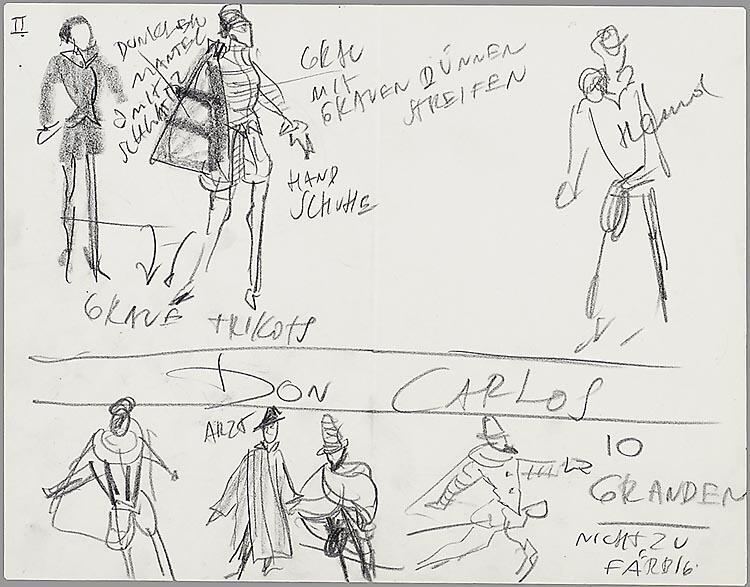 II
DUNKLER
MANTEL
MIT
SCHLITZ
GRAU
MIT
GRAUEN DÜNNEN
STREIFEN
HAND
SCHUHE
GRAUE TRIKOTS
DON CARLOS
ARZT
10
GRANDEN
NICHT ZU
FÄRBIG